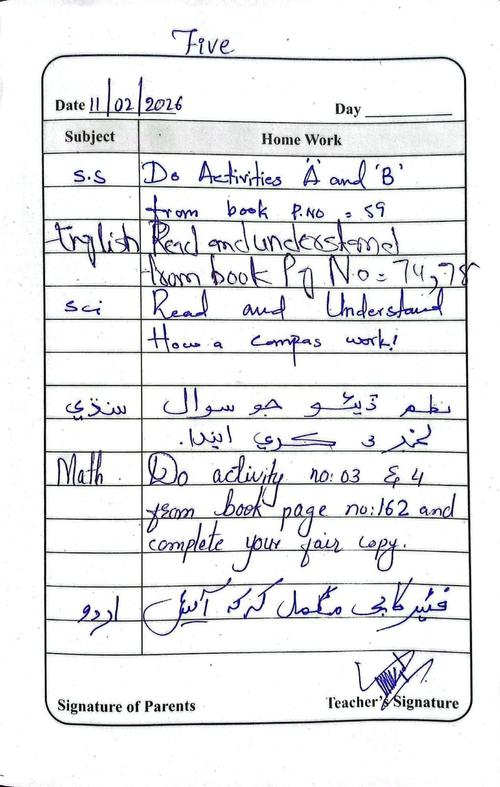 Five
Date 11/02/2026 Day
Subject Home Work
S.S Do Activities 'A' and 'B'
from book P.NO = 59
English Read and understand
from book Pg No = 74,
sci Read and Understand
How a compas work!
سنڌي نظم ڏيئو جو سوال
ڪري ايندا.
Math. Do activity no: 03 & 4
from book page no: 162 and
complete your fair copy.
اردو فئیر کاپی مکمل کرکہ آئیں
Signature of Parents Teacher's Signature